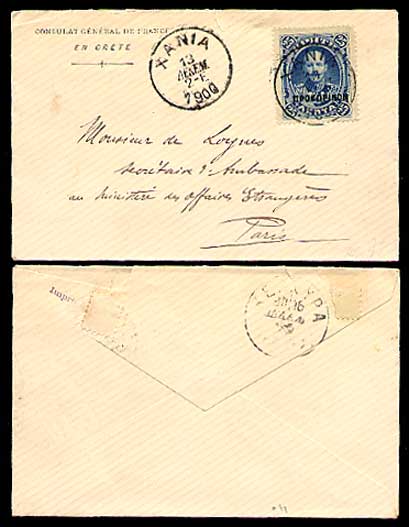 CONSULAT GÉNÉRAL DE FRANCE
EN CRÈTE
ΧΑΝΙΑ
13
ΔΕΚΕΜ
2-Ε
1900
25 25
ΠΡΟΣΩΡΙΝΟΝ
Monsieur de Loynes
secrétaire d'Ambassade
au ministère des affaires Etrangères
Paris
Impri
16